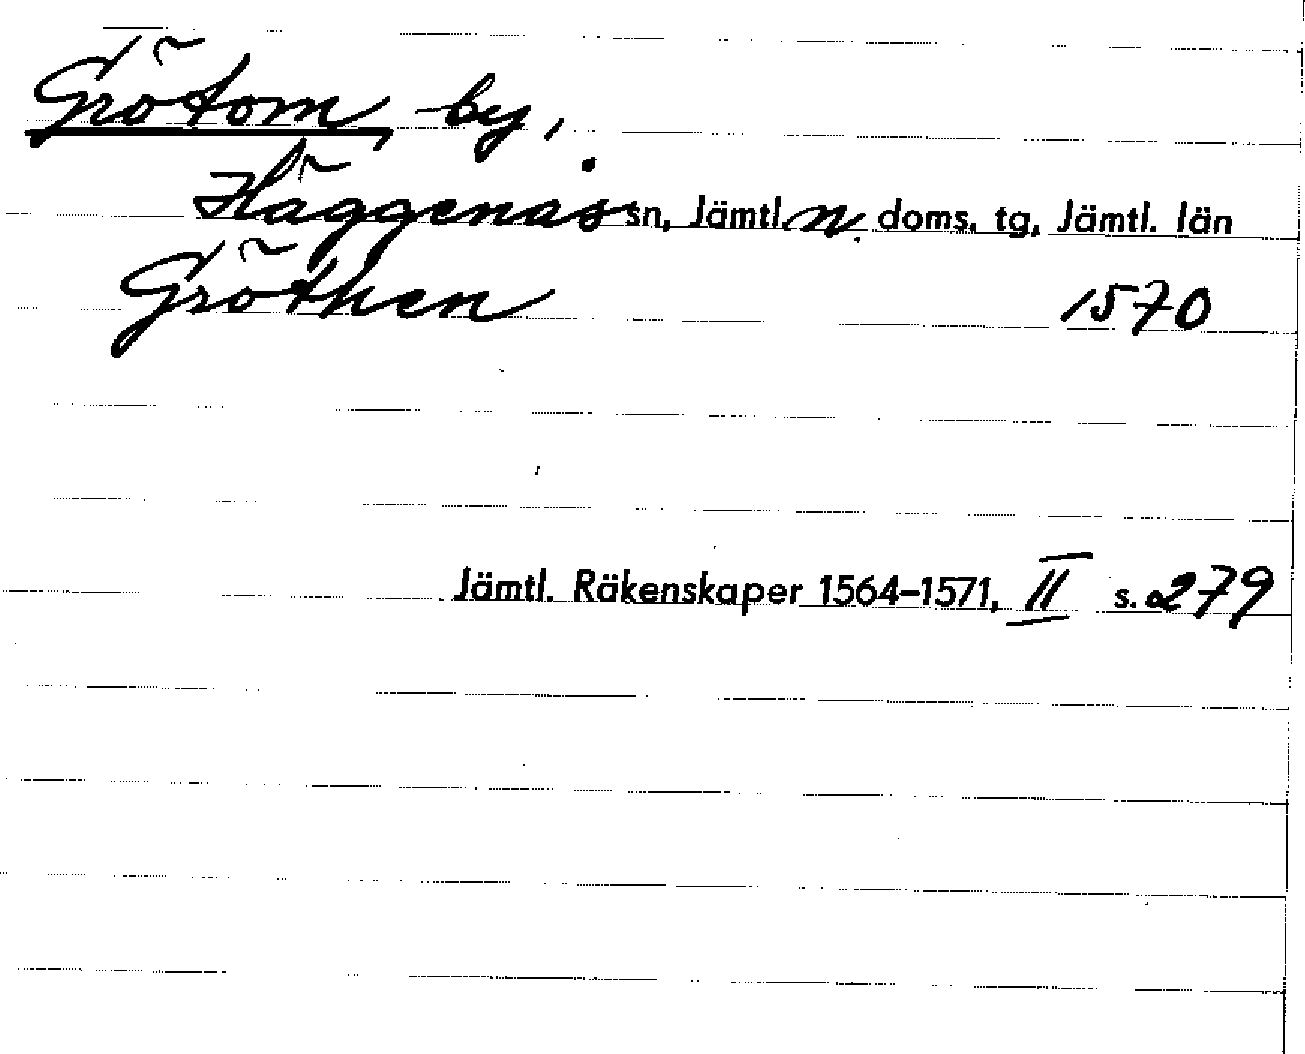 Grötom, by,
Häggenås sn, Jämtl. n. doms. tg, Jämtl. län
Gröthen 1570
Jämtl. Räkenskaper 1564-1571, II s. 279